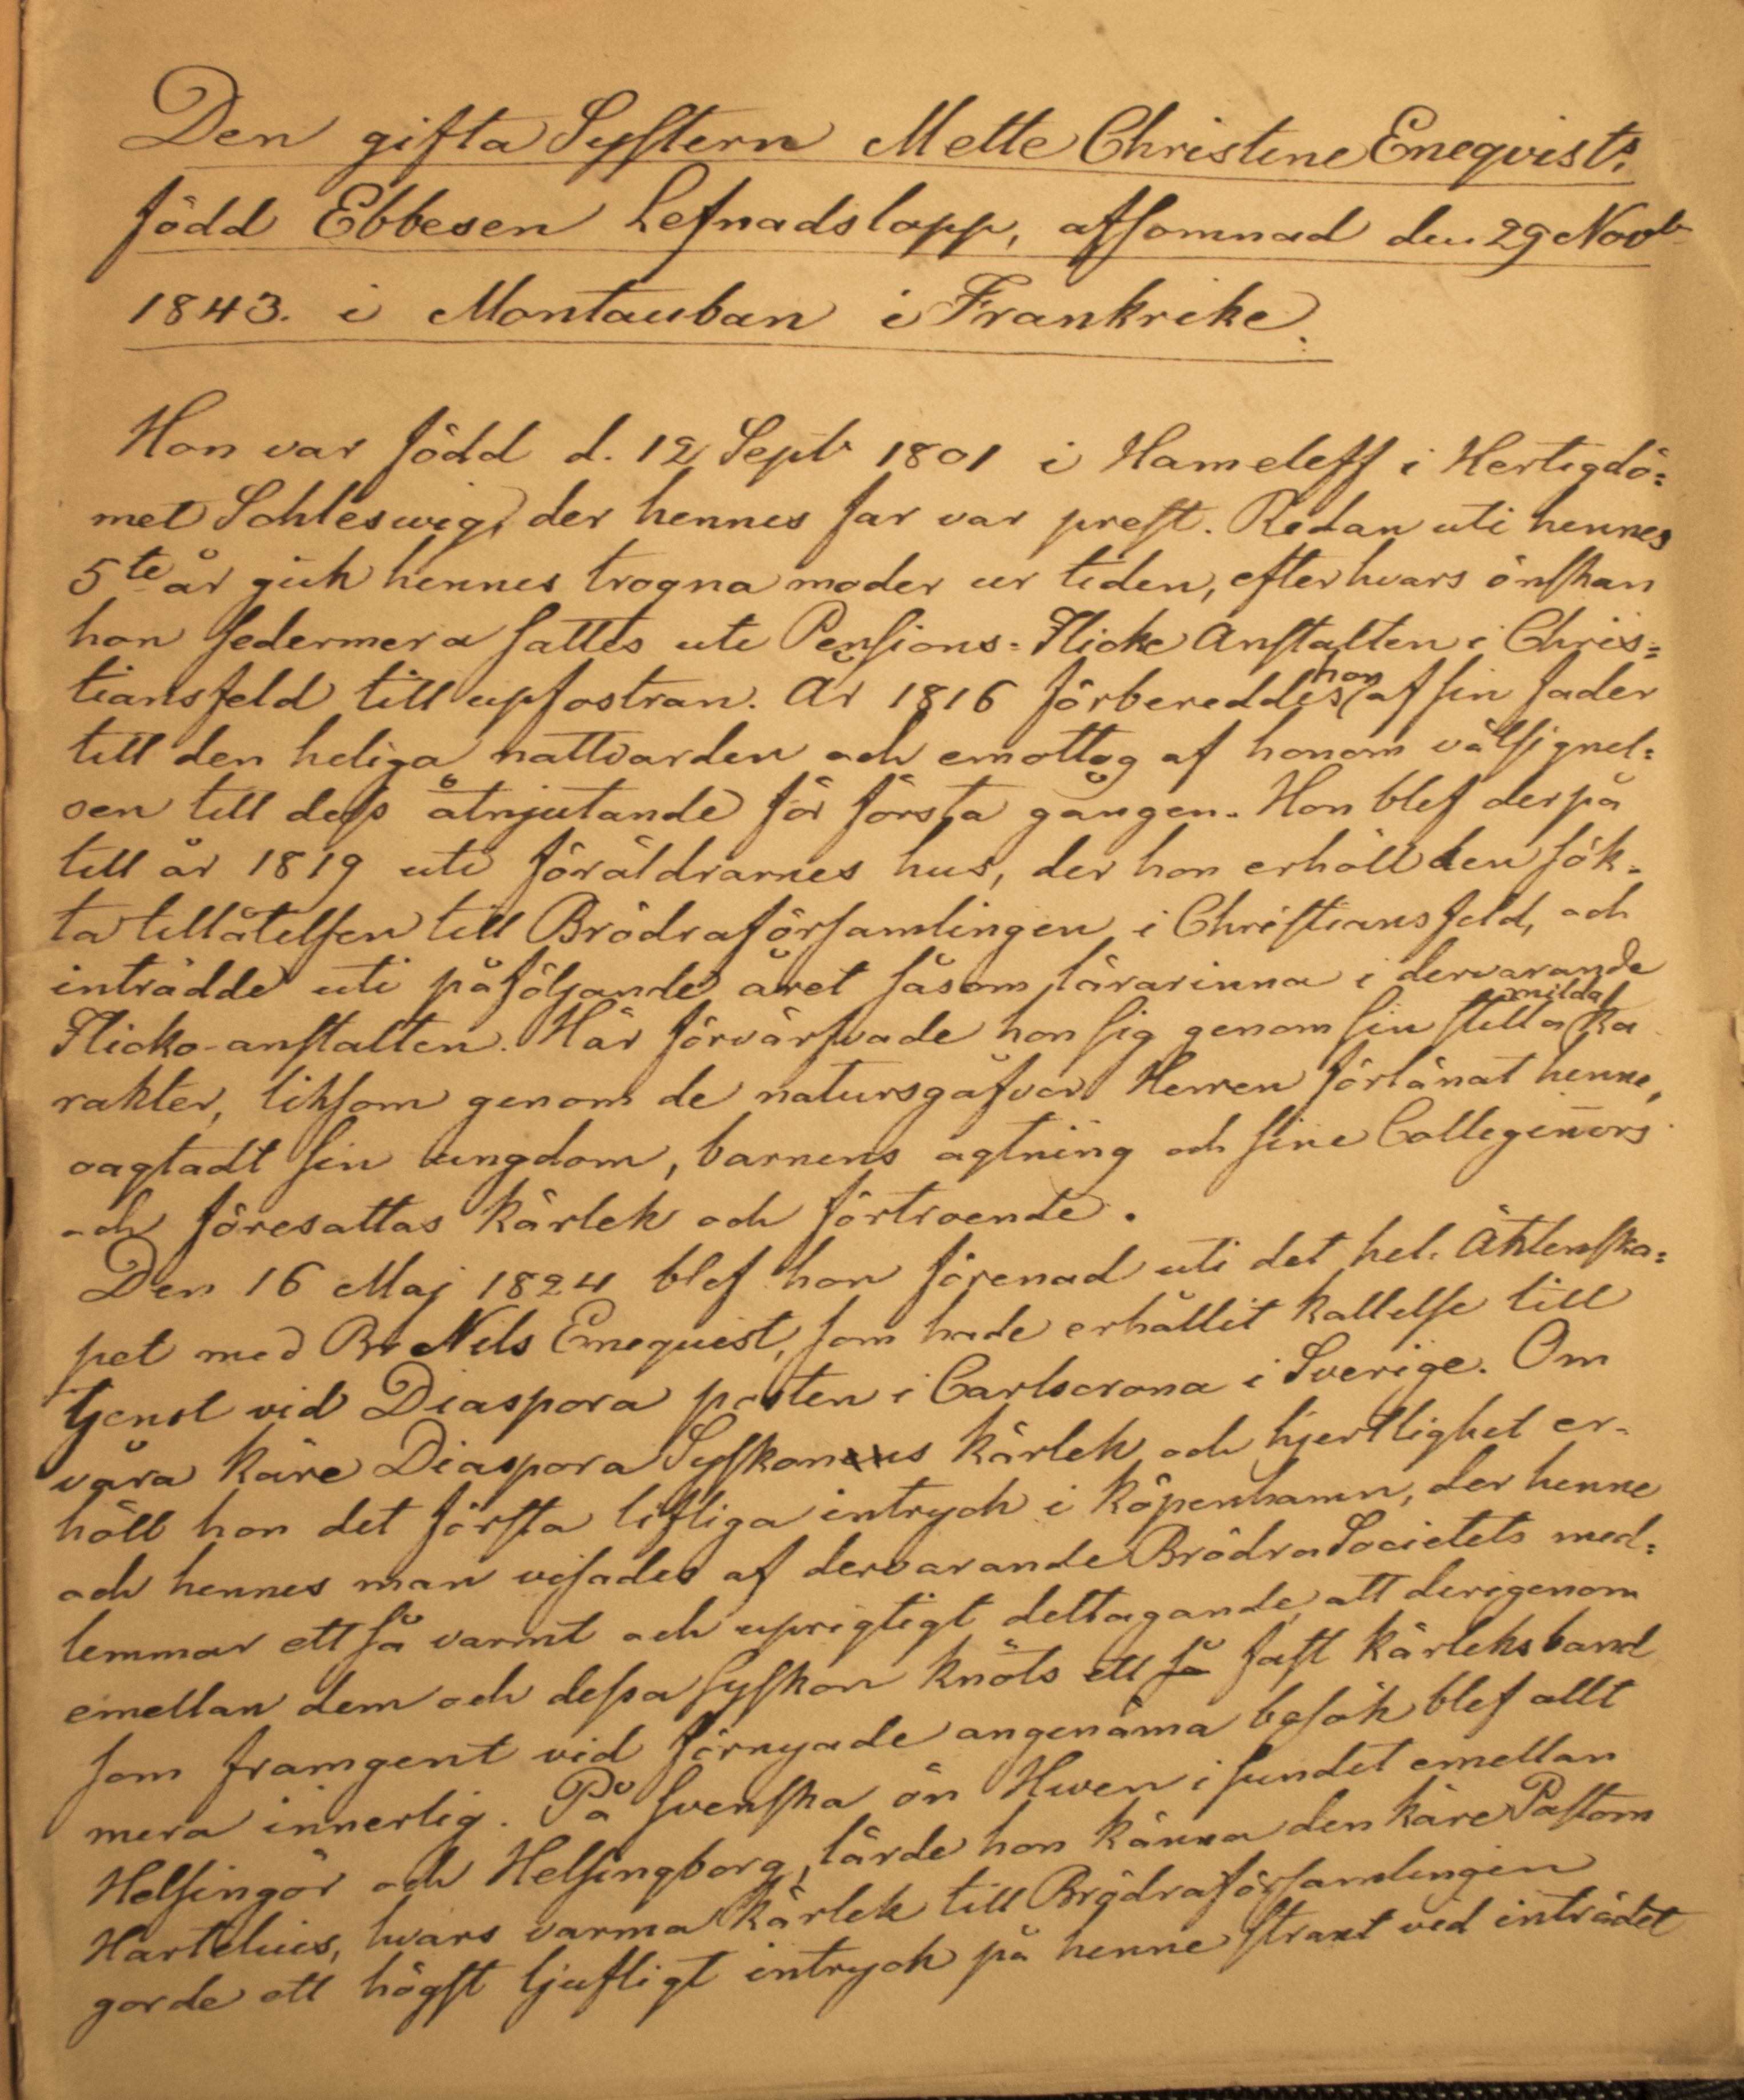 Den gifta Systern Mette Christine Eneqvists
född Ebbesen Lefnadslopp, afsomnad den 29 Novbr
1843. i Montauban i Frankrike.
Hon var född d. 12 Septr 1801 i Hameleff i Hertigdö=
met Schleswig, der hennes far var prest. Redan uti hennes
5te år gick hennes trogna moder ur tiden, efter hvars önskan
hon sedermera sattes uti Pensions=Flicke Anstalten i Chris=
tiansfeld till upfostran. År 1816 förbereddes hon af sin fader
till den heliga nattvarden och emottog af honom välsignel=
sen till dess åtnjutande för första gången. Hon blef derpå
till år 1819 uti föräldrarnes hus, der hon erhöll den sök=
ta tillåtelsen till Brödraförsamlingen i Christiansfeld, och
inträdde uti påföljande året såsom lärarinna i dervarande
Flicko-anstalten. Här förvärfvade hon sig genom sin stilla milda ka
rakter, liksom genom de natursgåfvor Herren förlänat henne,
oagtadt sin ungdom, barnens agtning och sine Colleginnors
och föresattas kärlek och förtroende.
Den 16 Maj 1824 blef hon förenad uti det hel. Äktenska=
pet med Br. Nils Enequist, som hade erhållit kallelse till
tjenst vid Diaspora posten i Carlscrona i Sverige. Om
våra käre Diaspora Syskonens kärlek och hjertlighet er=
höll hon det första lifliga intryck i Köpenhamn, der henne
och hennes man visades af dervarande Brödra Societets med=
lemmar ett så varmt och uprigtigt deltagande, att derigenom
emellan dem och dessa syskon knöts ett så fast kärleksband
som framgent vid förnyade angenäma besök blef allt
mera innerlig. På svenska ön Hwen i sundet emellan
Helsingör och Helsingborg, lärde hon känna den käre Pastorn
Hartelius, hvars varma kärlek till Brödraförsamlingen
gorde ett högst ljufligt intryck på henne straxt vid inträdet